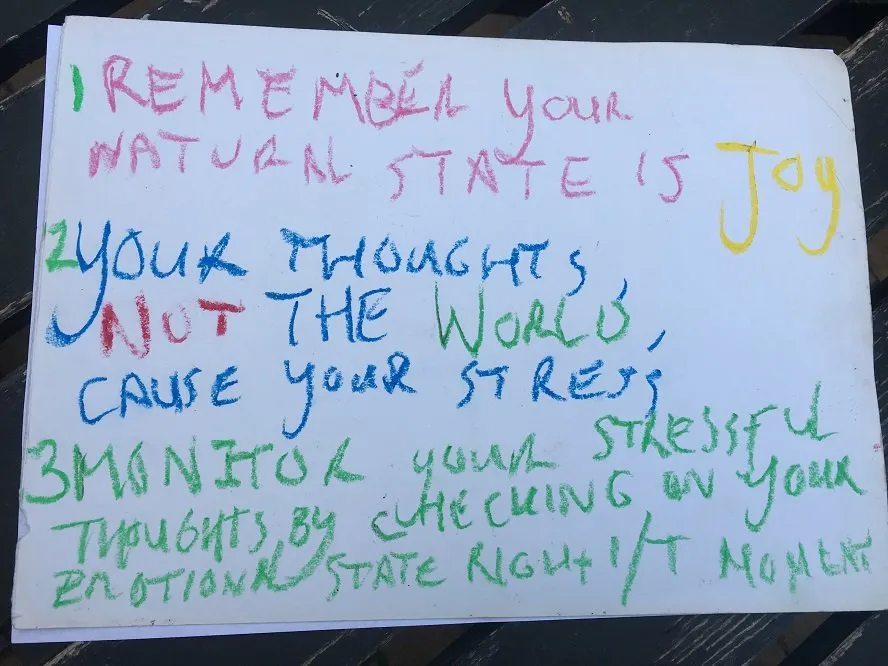 1 REMEMBER YOUR
NATURAL STATE IS JOY
2 YOUR THOUGHTS,
NOT THE WORLD,
CAUSE YOUR STRESS
3 MONITOR YOUR STRESSFUL
THOUGHTS, BY CHECKING ON YOUR
EMOTIONAL STATE RIGHT I/T MOMENT